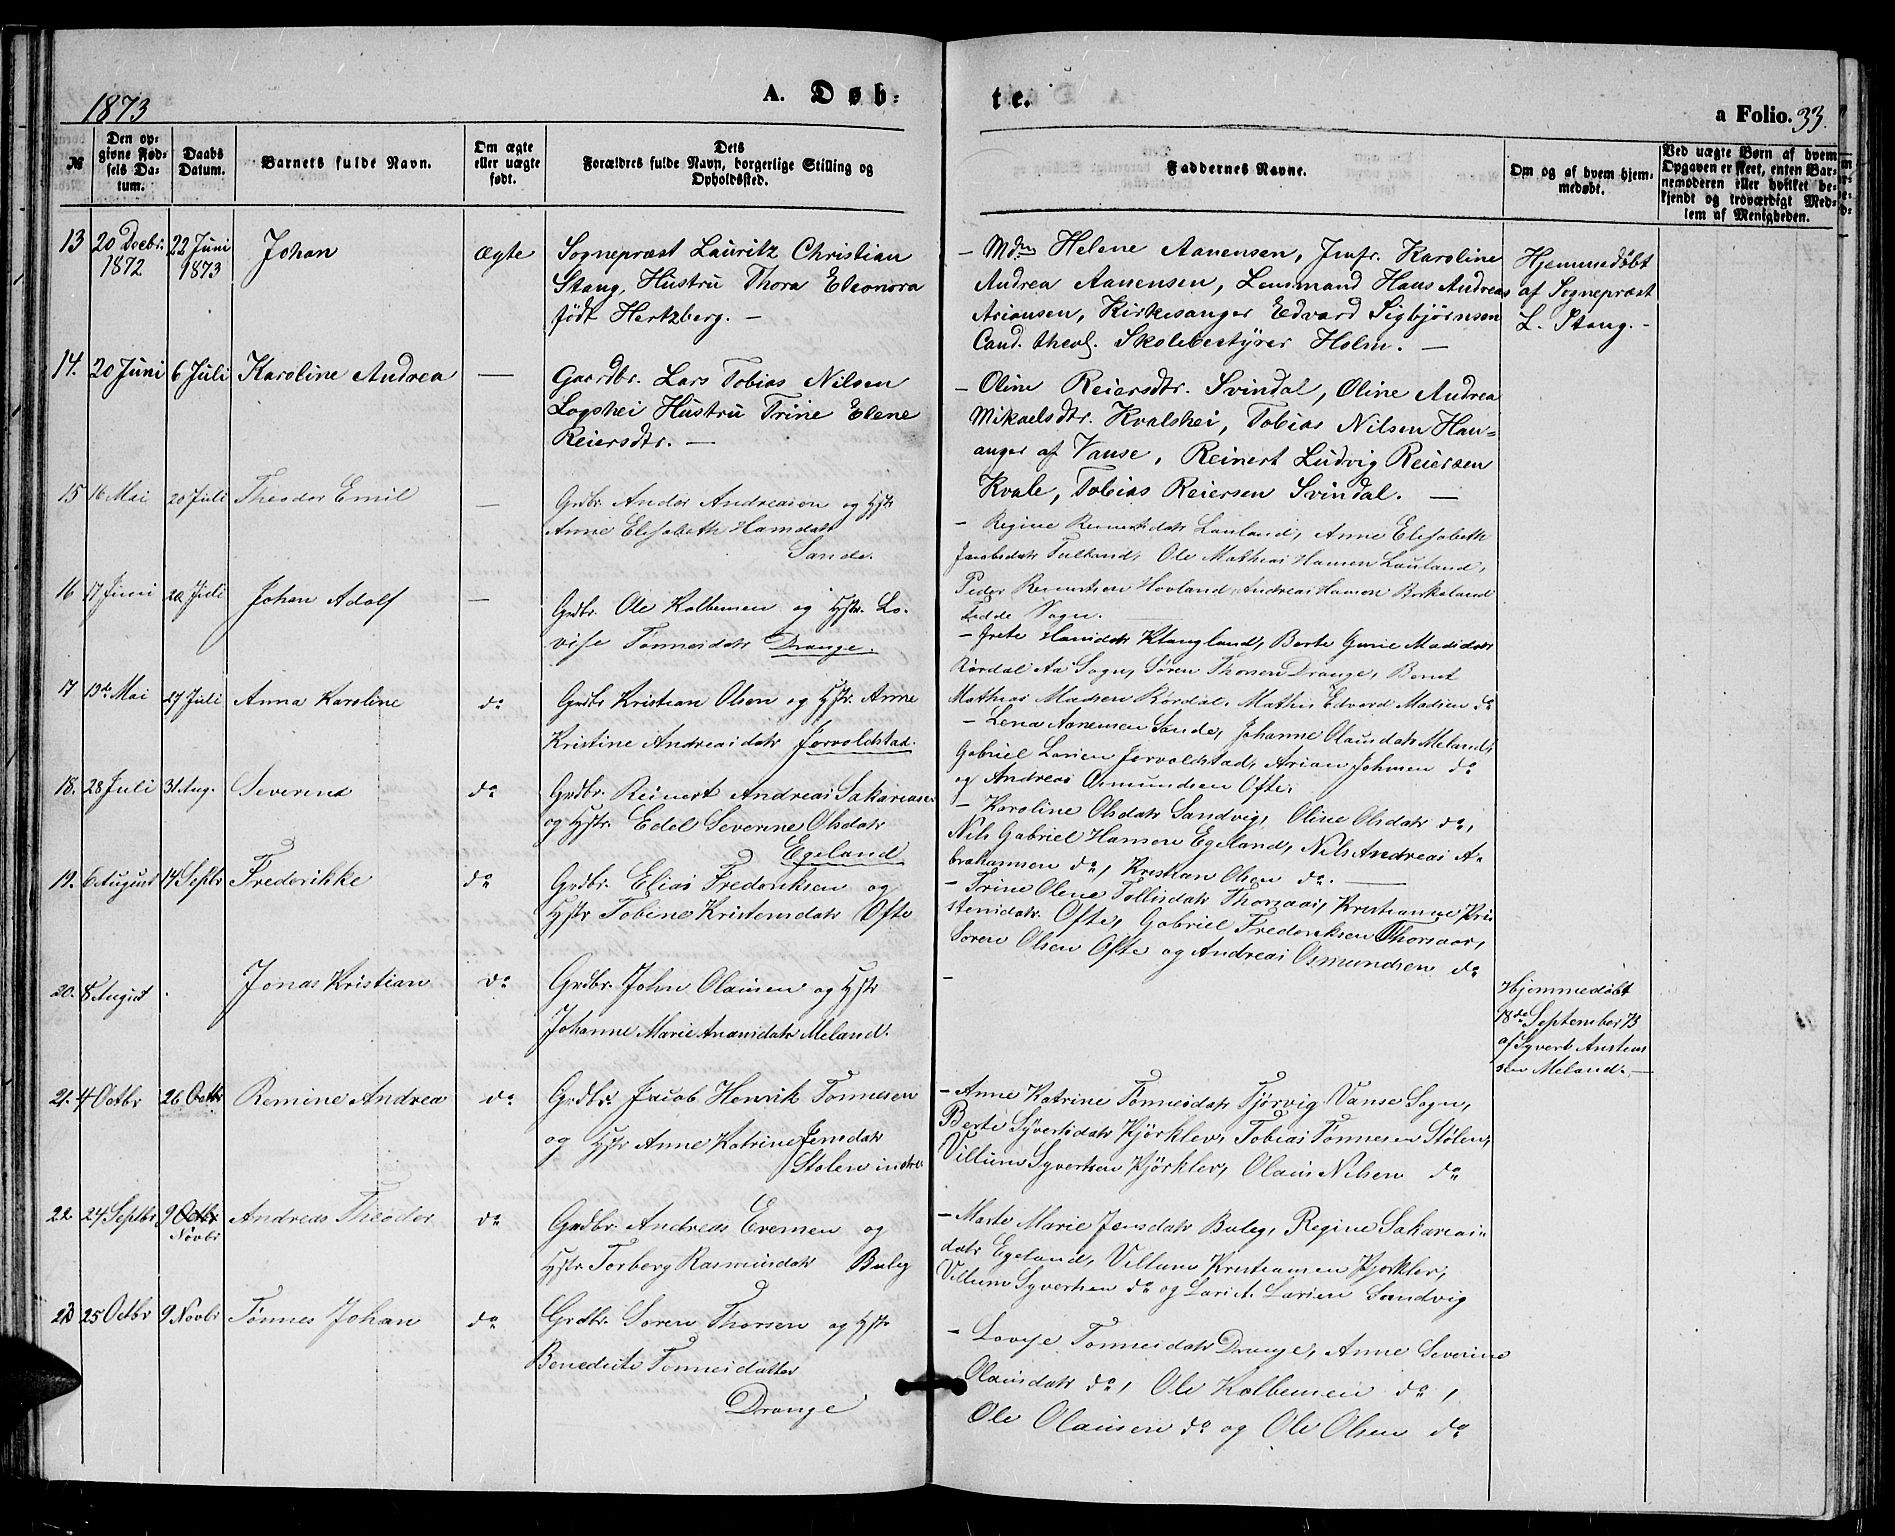 1873
A. Døb-
te.
a Folio. 33.
№
Den op-
givne Fød-
sels Da-
tum.
Daabs
Datum.
Barnets fulde Navn.
Om ægte
eller uægte
født.
Dets
Forældres fulde Navn, borgerlige Stilling og
Opholdssted.
Faddernes Navne.
Om og af hvem hjem-
medøbt.
Ved uægte Børn af hvem
Opgaven er skeet, enten Bar-
nemoderen eller hvilket be-
kjendt og troværdigt Med-
lem af Menigheden.
13 20 Decbr. 22 Juni Johan ægte Sognepræst Lauritz Christian
1872 1873 Stang, Hustru Thora Eleonora
født Hertzberg. —
— Mdm Helene Aanensen, Jmfr. Karoline
Andrea Aanensen, Lensmand Hans Andreas
Arionsen, Kirkesanger Edvard Sigbjørnsen
Cand. theol. Skolebestyrer Holm. —
Hjemmedøbt
af Sognepræst
L. Stang. -
14. 20 Juni 6 Juli Karoline Andrea — Gaardbr. Lars Tobias Nilsen
Logshei Hustru Trine Elene
Reiersdtr. —
— Oline Reiersdtr. Svindal, Oline Andrea
Mikaelsdtr. Kvalshei, Tobias Nilsen Hau-
anger af Vanse, Reinert Ludvig Reiersen
Kvale, Tobias Reiersen Svindal. —
15 16 Mai 20 Juli Theodor Emil — Grdbr. Andor Andreasen og Hstr
Anne Elisabeth Hansdatr
Sande.
— Regine Reinertsdatr Lauland, Anne Elisabeth
Jacobsdatr Tulland, Ole Mathias Hansen Lauland,
Peder Reinertsen Hovland, Andreas Hansen Birkeland
Fedde Sogn.
16 17 Juni 20 Juli Johan Adolf — Grdbr. Ole Kolbensen og Hstr. Lo-
vise Tønnesdatr Drange.
— Grete Hansdatr Klungland, Berte Gurie Madsdatr
Rørdal Aa Sogn, Søren Thorsen Drange, Bernt
Mathias Madsen Rørdal, Mathis Edvard Madsen do
17 13de Mai 27 Juli Anna Karoline do Grdbr Kristian Olsen og Hstr. Anne
Kristine Andreasdatr Jervoldstad.
— Lena Aanensen Sande, Johanne Olausdatr Meland,
Gabriel Larsen Jervoldstad, Arian Johnsen do
og Andreas Osmundsen Ofte.
18. 28 Juli 31 Aug. Severine do Grdbr. Reinert Andreas Sakariasen
og Hstr. Edel Severine Olsdatr
Egeland
— Karoline Olsdatr Sandvig, Oline Olsdatr do,
Nils Gabriel Hansen Egeland, Nils Andreas A-
brahamsen do, Kristian Olsen do. —
19. 6 August 14 Septbr Frederikke do Grdbr. Elias Fredriksen og
Hstr Tobine Kristensdatr Ofte
— Trine Olene Tollisdatr Thorsaas, Kristianne Kri
stensdatr Ofte, Gabriel Frederiksen Thorsaas,
Søren Olsen Ofte og Andreas Osmundsen do
20. 8 August . Jonas Kristian do Grdbr. John Olausen og Hstr
Johanne Marie Ananisdatr Meland.
—
Hjemmedøbt
18de September 73
af Syvert Austens
sen Meland. —
21. 4 Octbr 26 Octbr Remine Andrea do Grdbr. Jacob Henrik Tønnesen
og Hstr Anne Katrine Jensdatr
Stølen indre
— Anne Katrine Tønnesdatr Tjørvig Vanse Sogn,
Berte Syvertsdatr Kjørklev, Tobias Tønnesen Stølen,
Villum Syvertsen Kjørklev, Olaus Nilsen do
22 24 Septbr 9 Octbr Andreas Theodor do Grdbr Andreas Evensen og
Novbr Hstr Torberg Rasmusdatr Buleg
— Marte Marie Jensdatr Buleg, Regine Sakarias-
datr Egeland, Villum Kristiansen Kjørklev,
Villum Syvertsen do og Lauits Larsen Sandvig
23 25 Octbr 9 Novbr Tønnes Johan do Grdbr. Søren Thorsen og Hstr
Benedicte Tønnesdatter
Drange
— Lovise Tønnesdatr Drange, Anne Severine
Olausdatr do, Ole Kolbensen do,
Ole Olausen do og Ole Olsen do